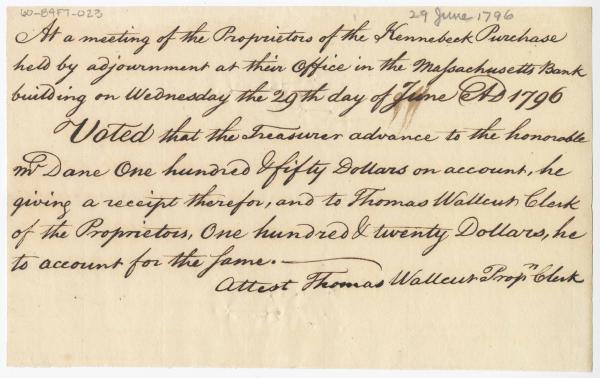 60-B9F7-023
29 June 1796
At a meeting of the Proprietors of the Kennebeck Purchase
held by adjournment at their Office in the Massachusetts Bank
building on Wednesday the 29th day of June AD 1796
Voted that the Treasurer advance to the honorable
Mr Dane One hundred & fifty Dollars on account, he
giving a receipt therefor, and to Thomas Wallcut Clerk
of the Proprietors, One hundred & twenty Dollars, he
to account for the same.
Attest Thomas Wallcut Propn Clerk